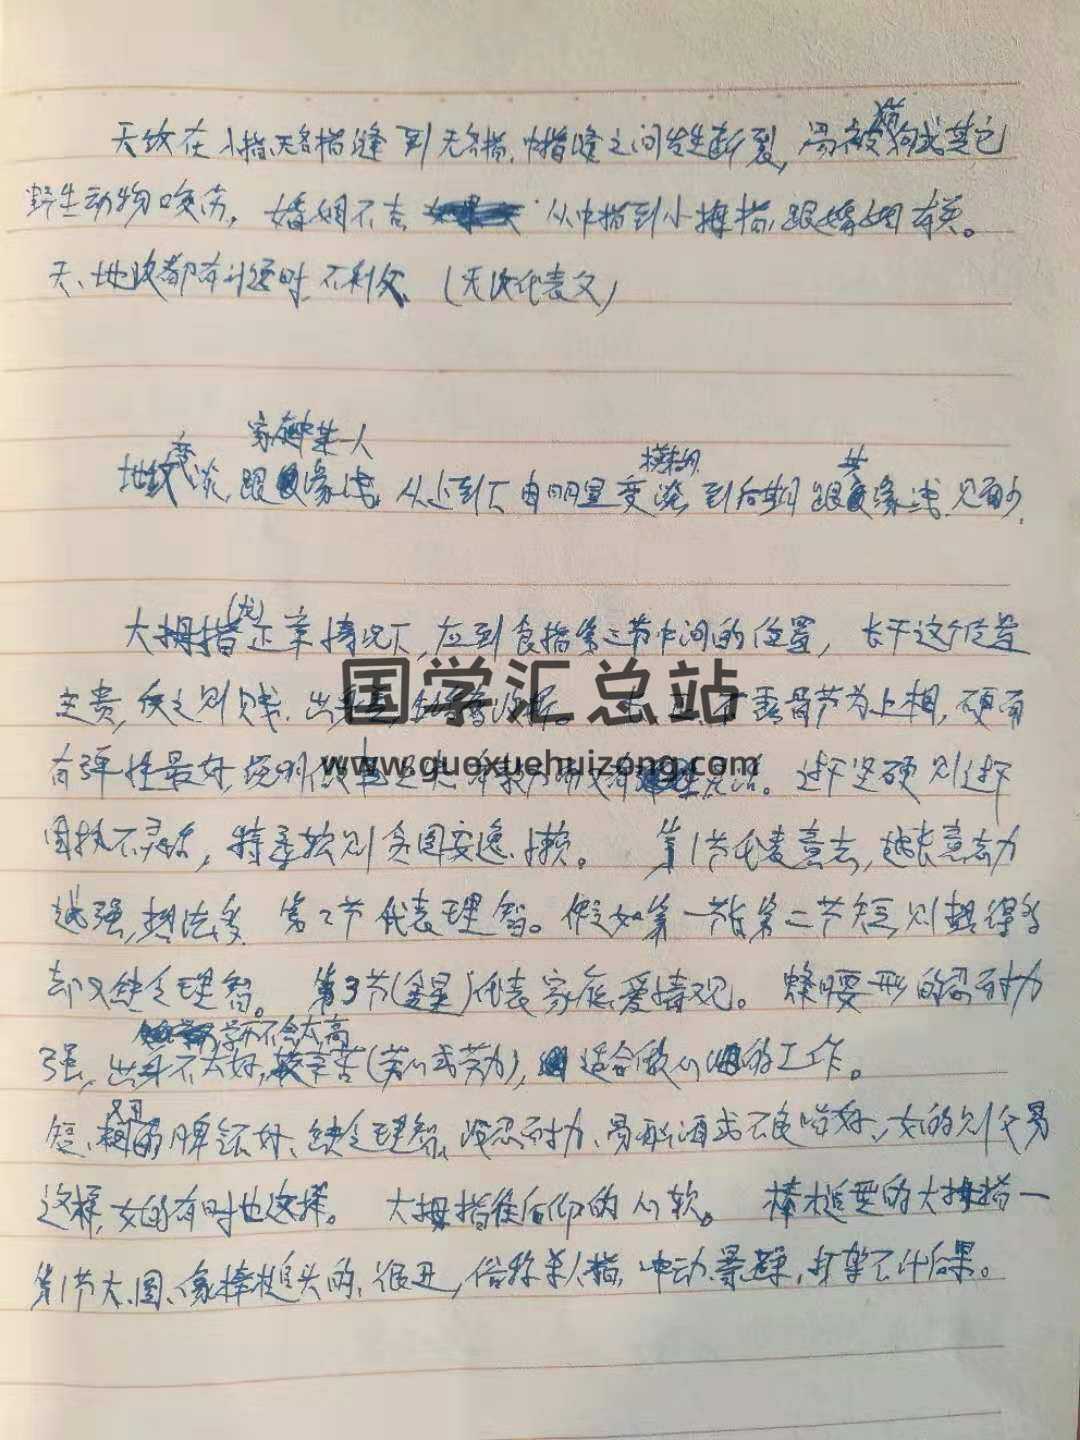 天纹在小指、无名指缝到无名指、中指缝之间发生断裂，易被猫狗或其它
野生动物咬伤。婚姻不吉 从中指到小拇指，跟婚姻有关。
天、地纹都有 时，不利父，(天纹代表父)
家庭中某一人
地纹变淡，跟 缘浅，从上到下由明显变淡 模糊，到后期跟其缘浅，见面少，
大拇指(龙)正常情况下，应到食指第三节中间的位置，长于这个位置
主贵，反之则贱， 不露骨节为上相，硬而
国学汇总站
有弹性最好， 过于坚硬则过于
www.guoxuehuizong.com
固执不灵活，特柔软则贪图安逸、懒。 第1节代表意志，越长意志力
越强，想法多 第2节代表理智。假如第一节长第二节短，则想得多
却又缺乏理智。 第3节(金星)代表家庭、爱情观。 蜂腰形的忍耐力
学历不会太高
强，出身不太好，较辛苦(劳心或劳力)， 适合做 的工作。
短、 的脾气不好、缺乏理智、没忍耐力、易酗酒或不良嗜好、女的则
这样，女的有时也这样。 大拇指往后仰的心软。 棒槌型的大拇指一
第1节大、圆、像棒槌头的，很丑，俗称杀人指，冲动、暴躁，打架不计后果。